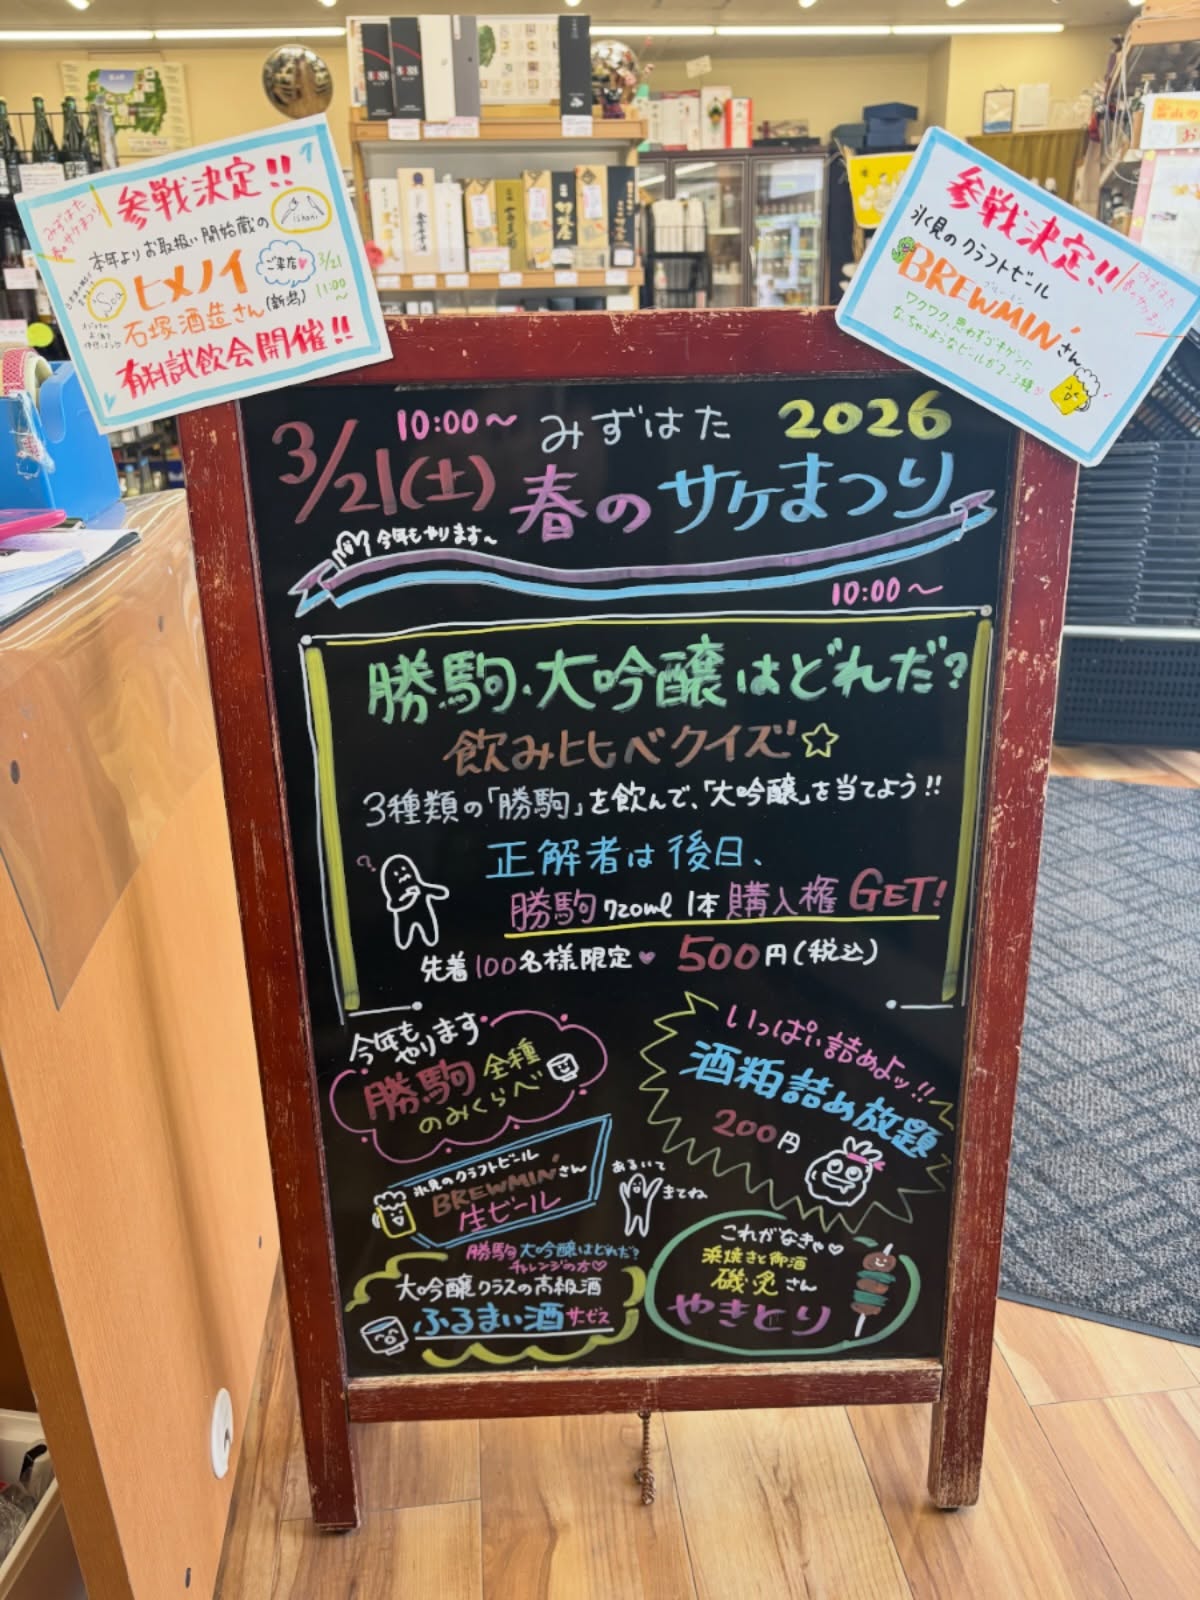 みずはた
春のサケまつり
参戦決定!!
本年よりお取扱い開始蔵の
ishani
ヒメノイ
ご来店♥
3/21
11:00
～
石塚酒造さん(新潟)
有料試飲会開催!!
参戦決定!!
みずはた
春のサケまつり
氷見のクラフトビール
BREWMIN'さん
ワクワク、思わずゴキゲンに
なっちゃうようなビールが2-3種
3/21(土)
10:00～
みずはた
2026
春のサケまつり
今年もやります～
10:00～
勝駒・大吟醸はどれだ?
飲み比べクイズ☆
3種類の「勝駒」を飲んで、「大吟醸」を当てよう!!
?
正解者は後日、
勝駒720ml 1本購入権GET!
先着100名様限定♥500円(税込)
今年も
やります
勝駒全種
のみくらべ
いっぱい詰めよッ!!
酒粕詰め放題
200円
氷見のクラフトビール
BREWMIN'さん
生ビール
あるいて
きてね
勝駒大吟醸はどれだ?
チャレンジの方♡
大吟醸クラスの高級酒
ふるまい酒サービス
これがなきゃ♡
浜焼きと御酒
磯兆さん
やきとり